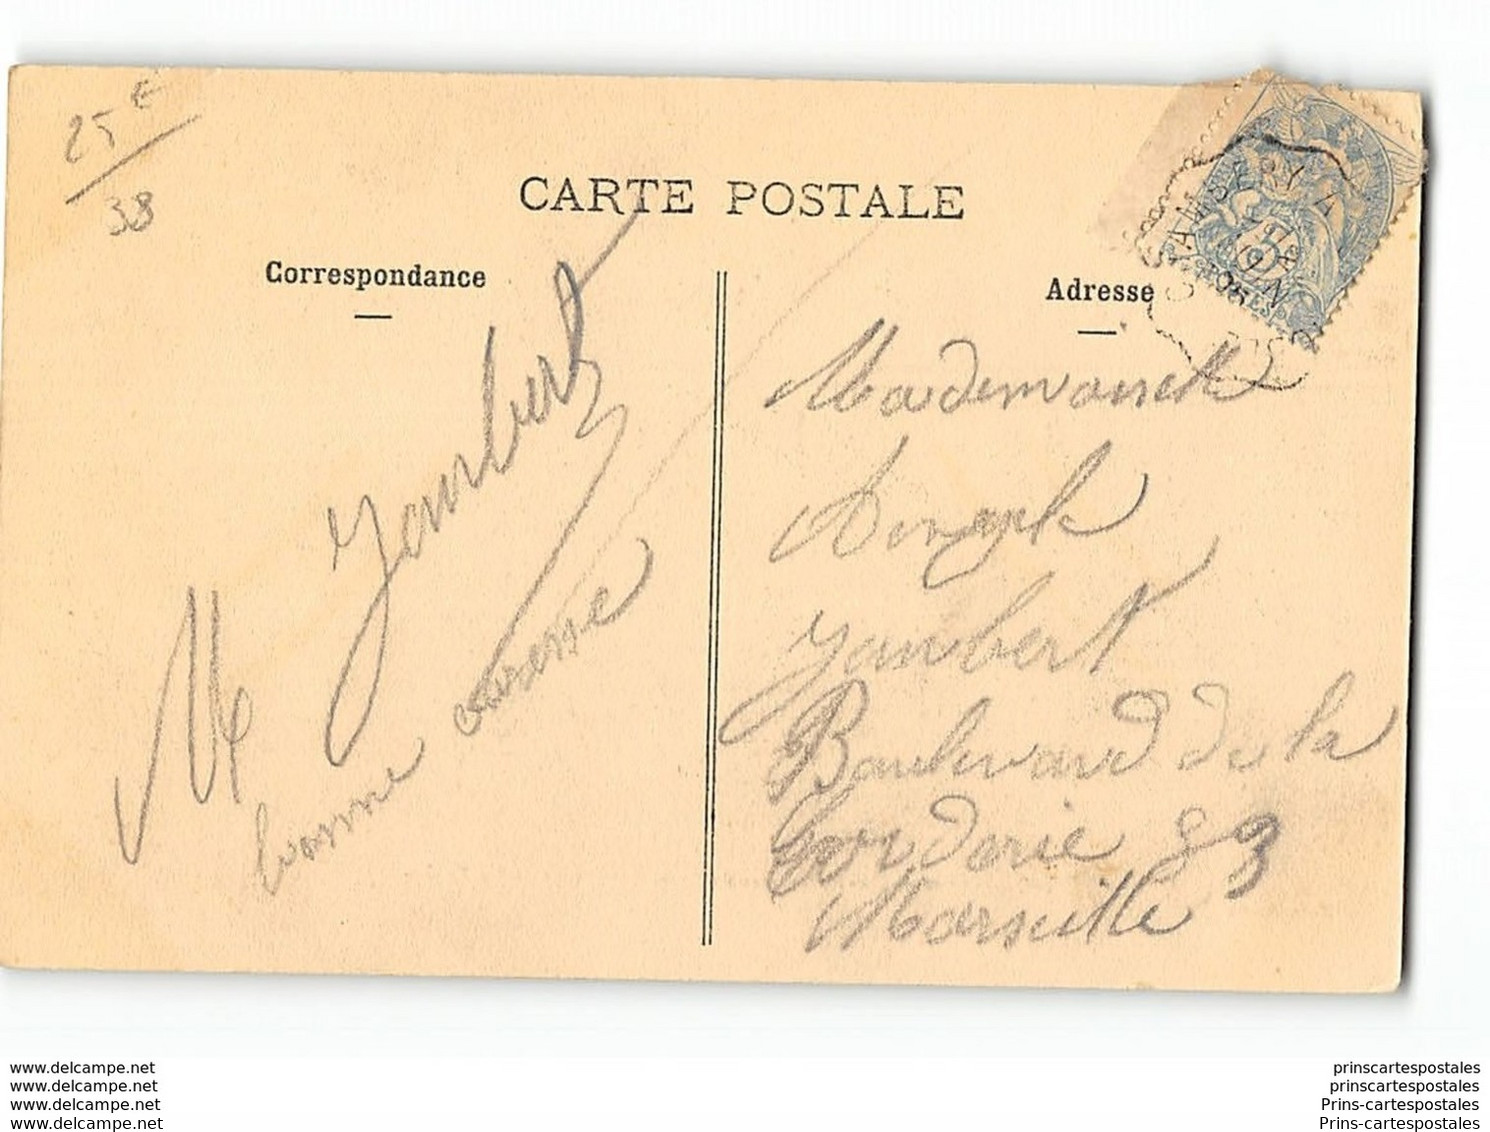 25 €
38
CARTE POSTALE
Correspondance
Adresse
CHAMBERY A
05
Jaubert
M
bonne caresse
Mademoiselle
Angèle
Jaubert
Boulevard de la
Corderie 83
Marseille
www.delcampe.net
www.delcampe.net
www.delcampe.net
www.delcampe.net
prinscartespostales
prinscartespostales
Prins-cartespostales
Prins-cartespostales